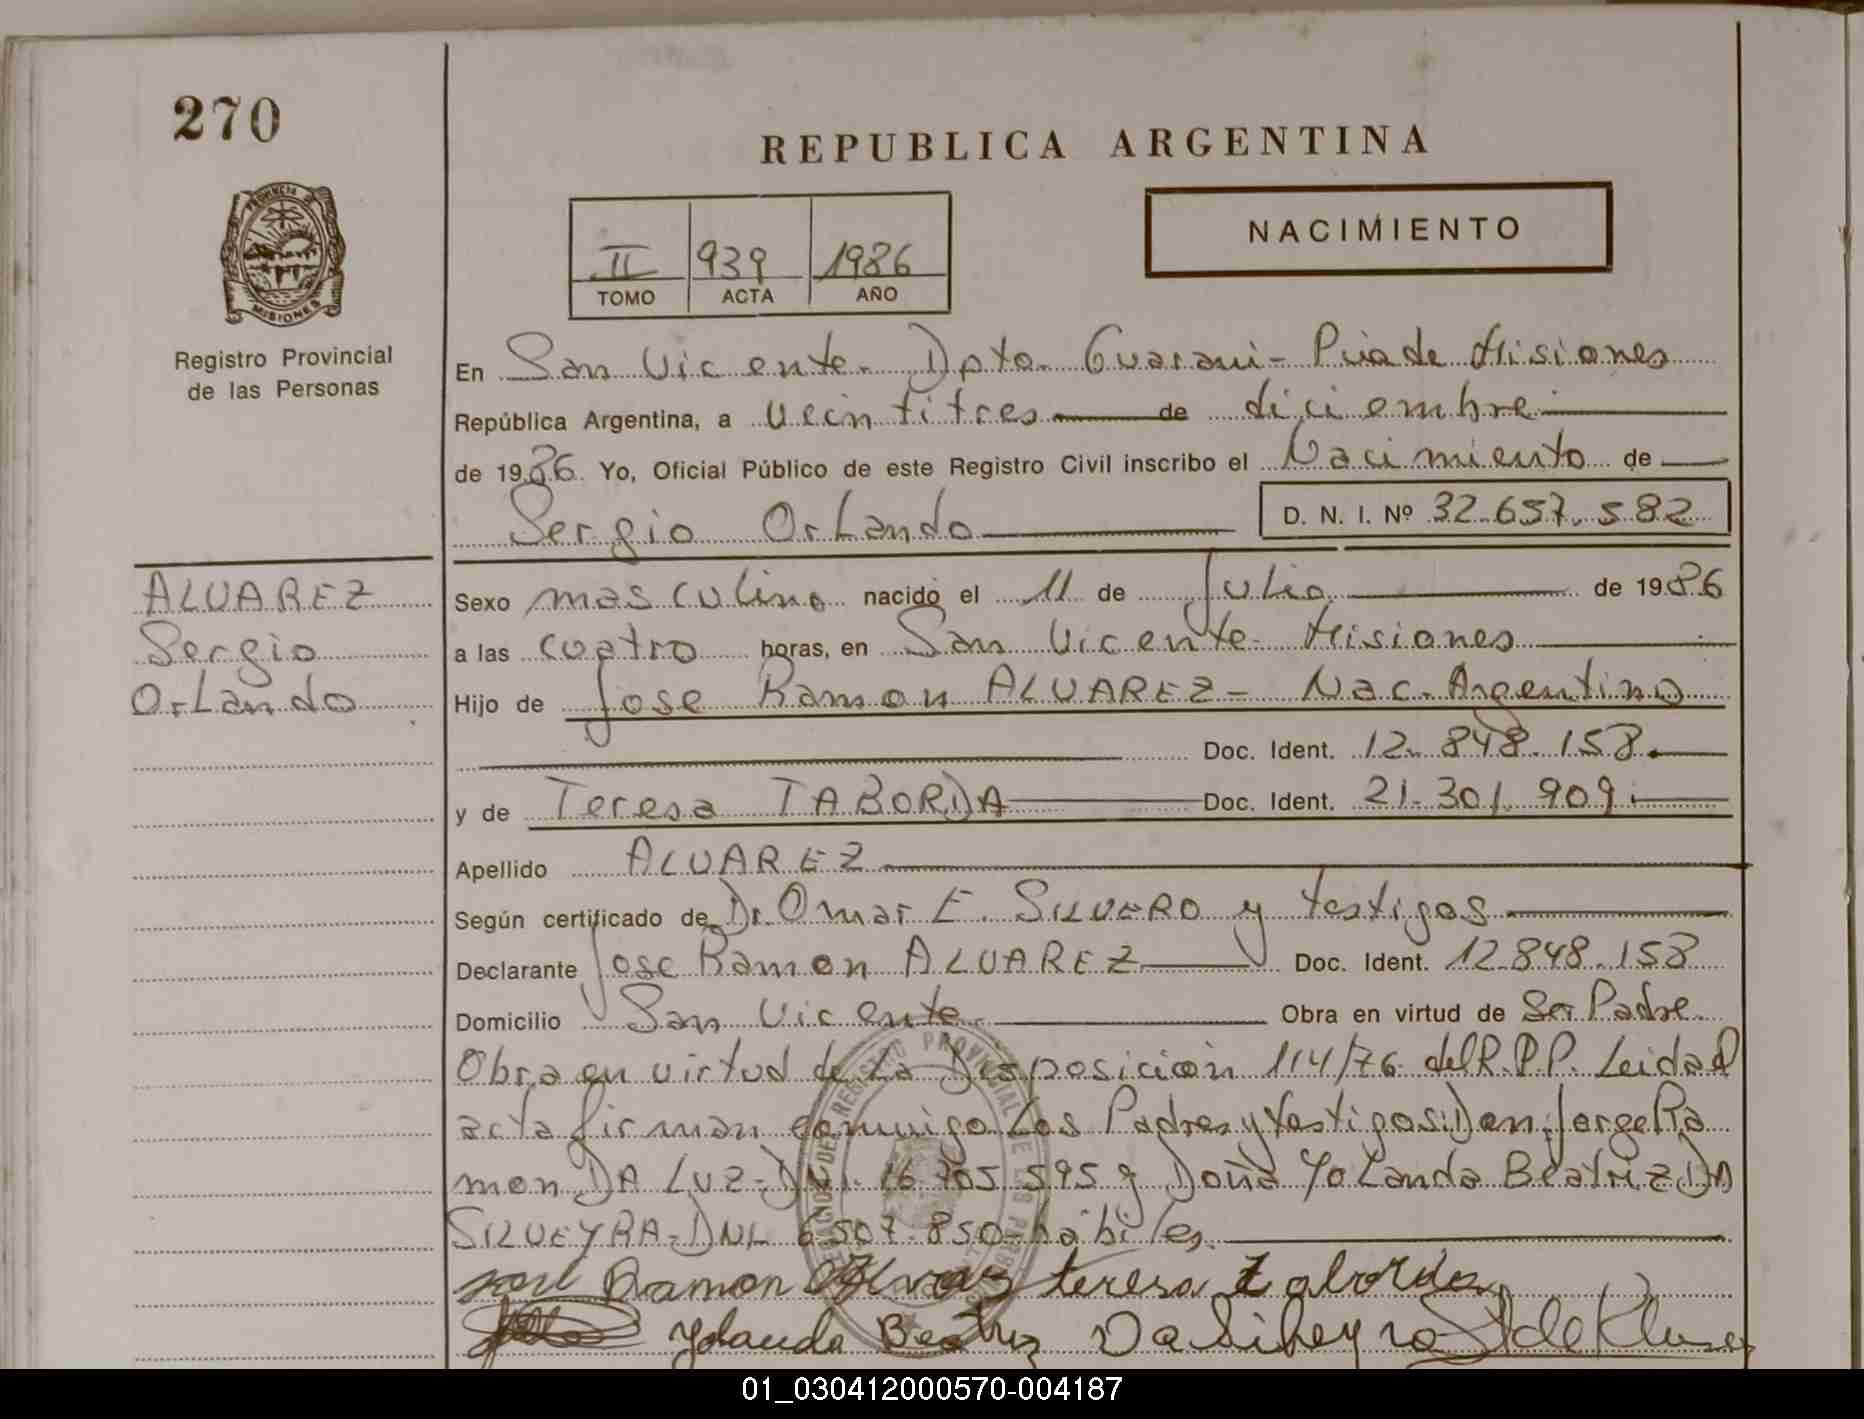 270
REPUBLICA ARGENTINA
PROVINCIA DE
MISIONES
Registro Provincial
de las Personas
II 939 1986
TOMO ACTA AÑO
NACIMIENTO
En San Vicente - Dpto. Guarani - Pcia de Misiones
República Argentina, a veintitres de diciembre
de 1986. Yo, Oficial Público de este Registro Civil inscribo el Nacimiento de
Sergio Orlando D. N. I. Nº 32.657.582
ALVAREZ
Sergio
Orlando
Sexo masculino nacido el 11 de Julio de 1986
a las cuatro horas, en San Vicente - Misiones
Hijo de Jose Ramon ALVAREZ - Nac. Argentino
Doc. Ident. 12.848.158.
y de Teresa TABORDA Doc. Ident. 21.301.909.
Apellido ALVAREZ
Según certificado de Dr. Omar E. SILVERO y testigos
Declarante Jose Ramon ALVAREZ Doc. Ident. 12.848.158
Domicilio San Vicente. Obra en virtud de Ser Padre.
Obra en virtud de La Disposicion 114/76 del R.P.P. Leida el
acta firman conmigo Los Padres y testigos: Don Jorge Ra
mon DA LUZ - DNI. 16.705.595 y Doña Yolanda Beatriz DA
SILVEYRA - DNI. 6.507.850 - hábiles.
Ramon Alvarez teresa taborda
Yolanda Beatriz Da Silveyra
01_030412000570-004187